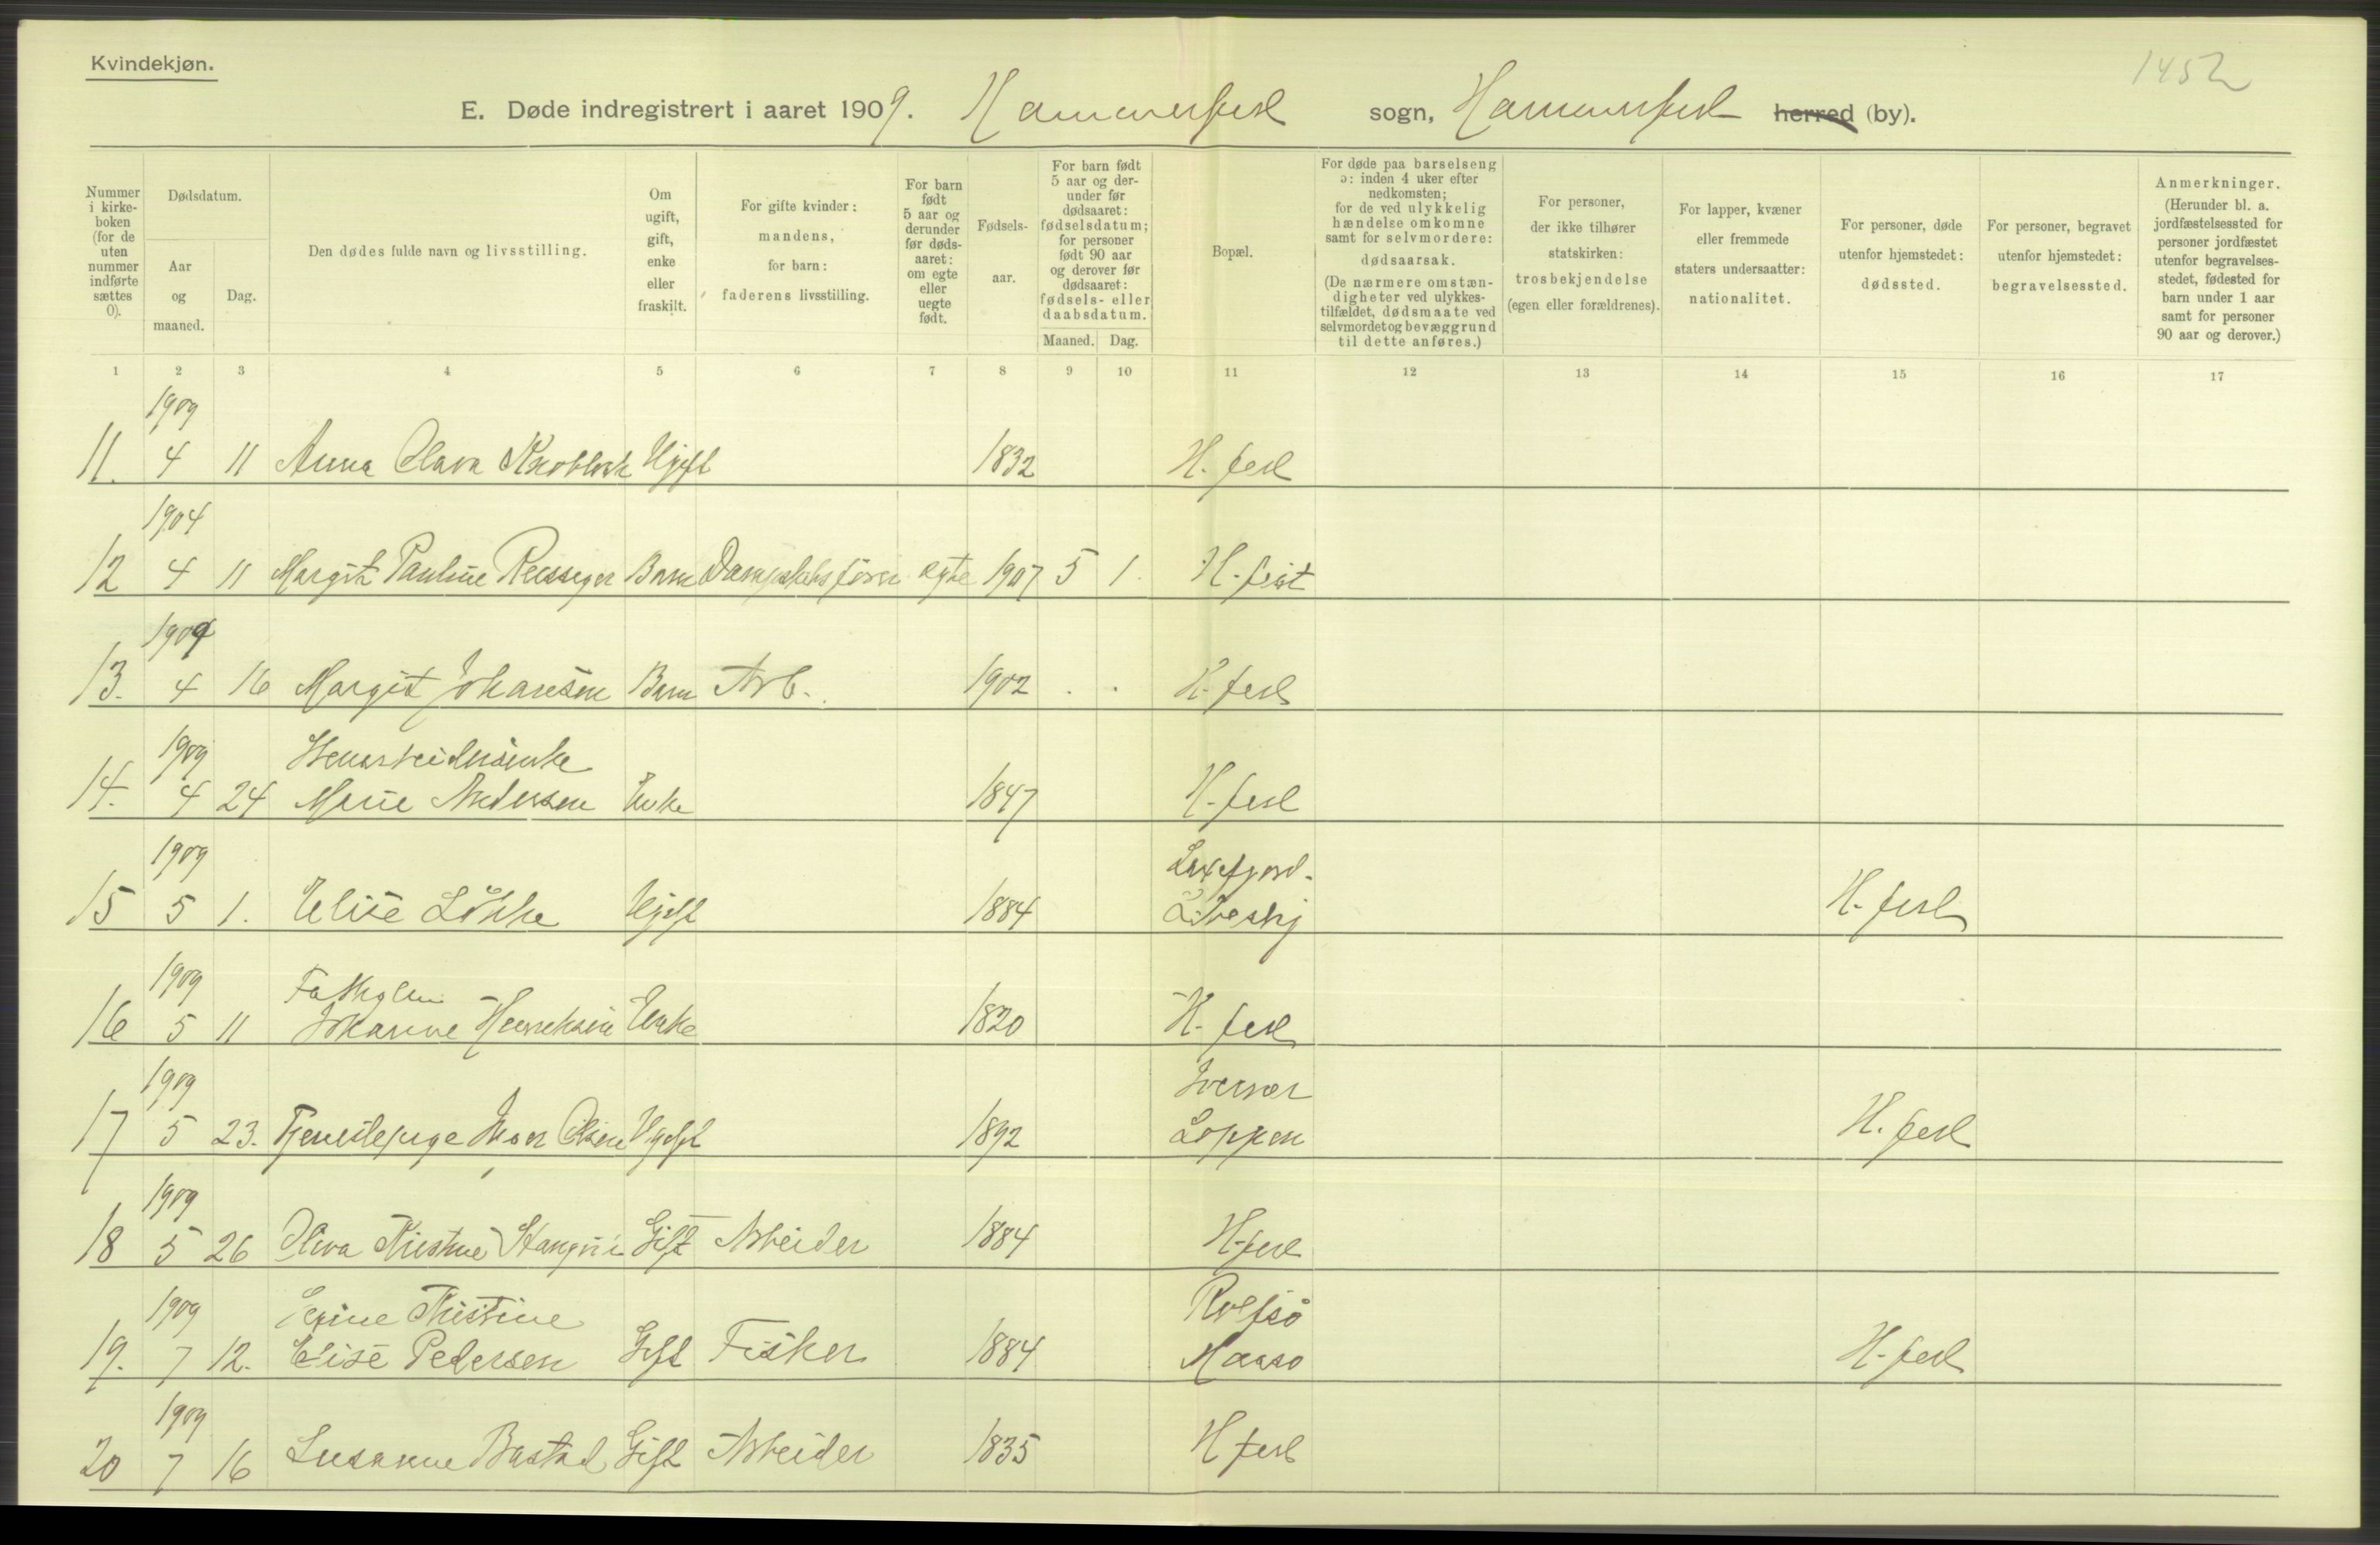 Kvindekjøn.
1452
E. Døde indregistrert i aaret 1909. Hammerfest sogn, Hammerfest herred (by).
Nummer i kirke-boken (for de uten nummer indførte sættes 0).
Dødsdatum.
Aar og maaned.
Dag.
Den dødes fulde navn og livsstilling.
Om ugift, gift, enke eller fraskilt.
For gifte kvinder: mandens, for barn: faderens livsstilling.
For barn født 5 aar og derunder før døds-aaret: om egte eller uegte født.
Fødsels-aar.
For barn født 5 aar og der-under før dødsaaret: fødselsdatum; for personer født 90 aar og derover før dødsaaret: fødsels- eller daabsdatum.
Maaned. Dag.
Bopæl.
For døde paa barselseng ɔ: inden 4 uker efter nedkomsten; for de ved ulykkelig hændelse omkomne samt for selvmordere: dødsaarsak. (De nærmere omstæn-digheter ved ulykkes-tilfældet, dødsmaate ved selvmordet og bevæggrund til dette anføres.)
For personer, der ikke tilhører statskirken: trosbekjendelse (egen eller forældrenes).
For lapper, kvæner eller fremmede staters undersaatter: nationalitet.
For personer, døde utenfor hjemstedet: dødssted.
For personer, begravet utenfor hjemstedet: begravelsessted.
Anmerkninger. (Herunder bl. a. jordfæstelsessted for personer jordfæstet utenfor begravelses-stedet, fødested for barn under 1 aar samt for personer 90 aar og derover.)
1 2 3 4 5 6 7 8 9 10 11 12 13 14 15 16 17
1909
11. 4 11 Anna Olava Knoblock Ugift 1832 H. fest
1904
12 4 11 Margit Pauline Barn Dampskibsfører egte 1907 5 1. H. fest
1909
13. 4 16 Margit Johansen Barn Arb. 1902 . . H. fest
1909
14. 4 24 Marie Andersen Enke 1847 H. fest
1909 Laxefjord.
15 5 1. Elise Løkke Ugift 1884 H. fest
1909
16 5 11 Johanne Henriksen Enke 1820 H. fest
1909
17 5 23. Tjenestepige Olsen Ugift 1892 Loppen H. fest
1909
18 5 26 Oliva Kristine Gift Arbeider 1884 H. fest
1909 Kristine Rolfsø
19. 7 12. Elise Pedersen Gift Fisker 1884 Maasø H. fest
1909
20 7 16 Susanne Bastad Gift Arbeider 1835 H fest